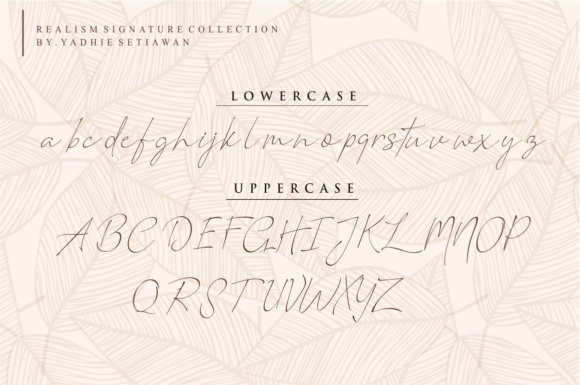 REALISM SIGNATURE COLLECTION
BY. YADHIE SETIAWAN
LOWERCASE
a b c d e f g h i j k l m n o p q r s t u v w x y z
UPPERCASE
A B C D E F G H I J K L M N O P
Q R S T U V W X Y Z